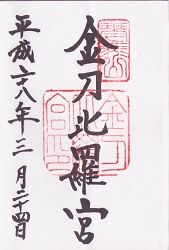 金刀比羅宮
平成二八年三月二十四日